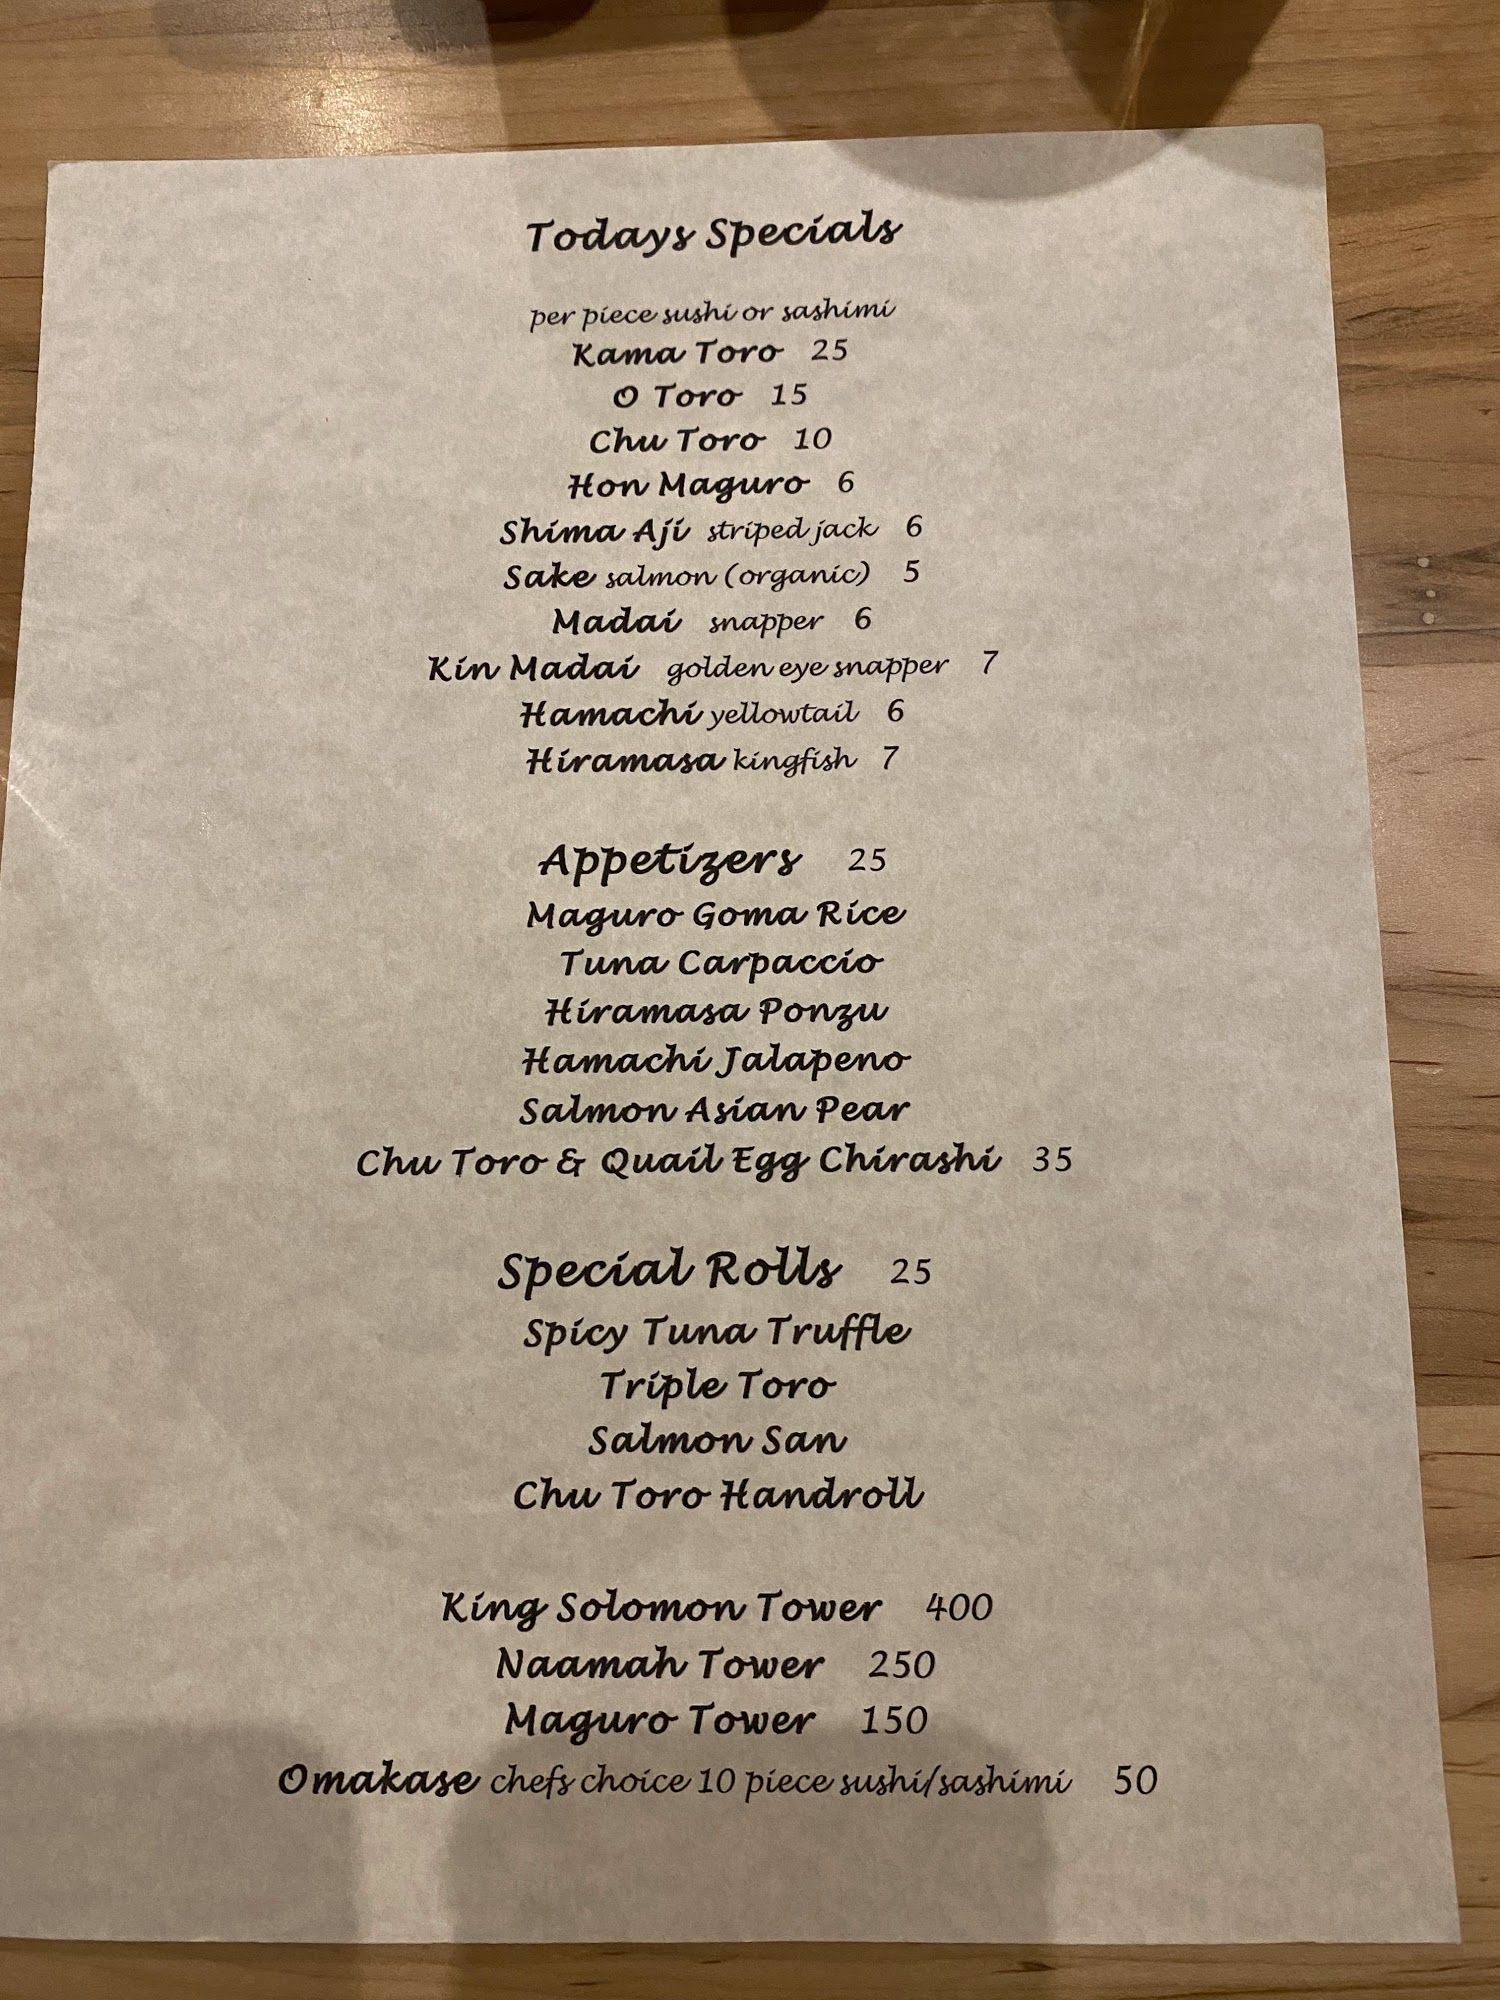 Todays Specials
per piece sushi or sashimi
Kama Toro 25
O Toro 15
Chu Toro 10
Hon Maguro 6
Shima Aji striped jack 6
Sake salmon (organic) 5
Madai snapper 6
Kin Madai golden eye snapper 7
Hamachi yellowtail 6
Hiramasa kingfish 7
Appetizers 25
Maguro Goma Rice
Tuna Carpaccio
Hiramasa Ponzu
Hamachi Jalapeno
Salmon Asian Pear
Chu Toro & Quail Egg Chirashi 35
Special Rolls 25
Spicy Tuna Truffle
Triple Toro
Salmon San
Chu Toro Handroll
King Solomon Tower 400
Naamah Tower 250
Maguro Tower 150
Omakase chefs choice 10 piece sushi/sashimi 50